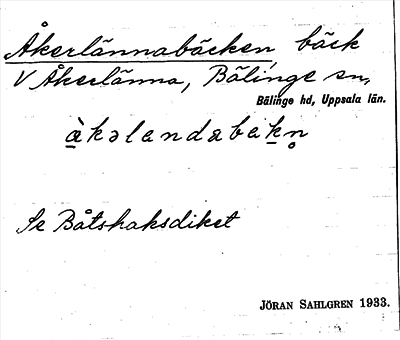 Åkerlännabäcken, bäck
V Åkerlänna, Bälinge sn,
Bälinge hd, Uppsala län.
àkəlandabekn̥
Se Båtshaksdiket
JÖRAN SAHLGREN 1933.